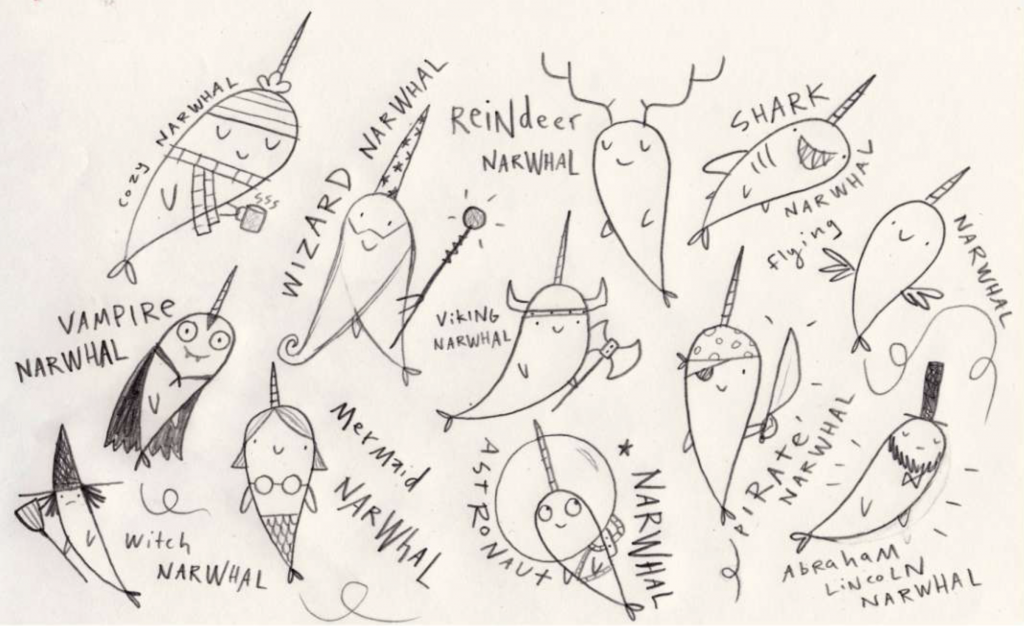 COZY NARWHAL
WIZARD NARWHAL
ReiNdeer
NARWHAL
SHARK
NARWHAL
flying
NARWHAL
VAMPIRe
NARWHAL
ViKiNG
NARWHAL
MerMaid
NARWHAL
PiRATe
NARWHAL
Witch
NARWHAL
ASTRONAUT
* NARWHAL
AbraHaM
LiNCOLN
NARWHAL